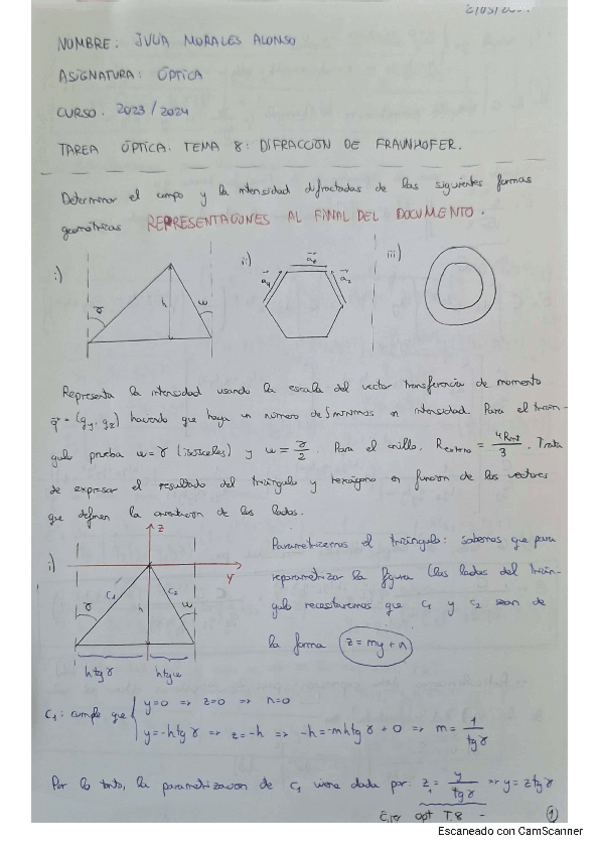 NOMBRE: JULIA MORALES ALONSO
ASIGNATURA: ÓPTICA
CURSO: 2023/2024
TAREA ÓPTICA. TEMA 8: DIFRACCIÓN DE FRAUNHOFER.
Determinar el campo y la intensidad difractadas de las siguientes formas
geométricas REPRESENTACIONES AL FINAL DEL DOCUMENTO.
i) ii) iii)
γ h ω a₁ a₀ a₂
Representa la intensidad usando la escala del vector transferencia de momento
q = (qy, qz) haciendo que haya un número de 5 mínimos en intensidad. Para el trián-
gulo prueba ω=γ (isósceles) y ω = γ/2. Para el anillo, R = 4R/3. Trata
de expresar el resultado del triángulo y hexágono en función de los vectores
que definen la orientación de los lados.
i) z
y
C₁ C₂ γ h ω
h tg γ h tg ω
Parametrizemos el triángulo: sabemos que para
reparametrizar la figura (los lados del trián-
gulo necesitaremos que C₁ y C₂ sean de
la forma z = my + n
C₁: cumple que y=0 => z=0 => n=0
y=-h tg γ => z=-h => -h=-mh tg γ + 0 => m = 1/tg γ
Por lo tanto, la parametrización de C₁ viene dada por: z₁ = y/tg γ => y = z tg γ
opt T.8
1
Escaneado con CamScanner